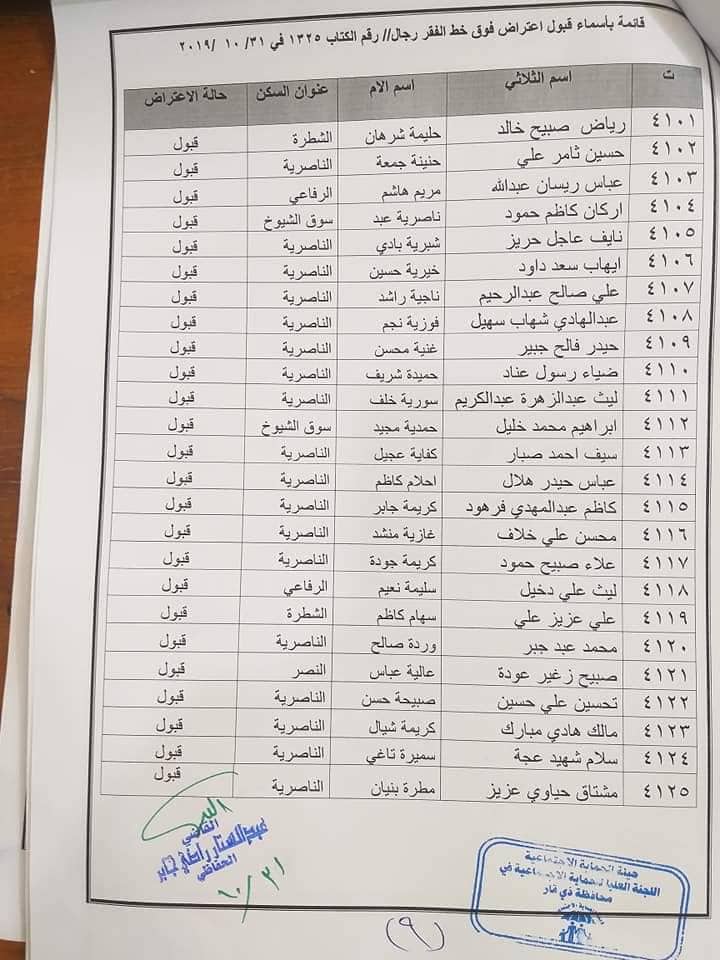 قائمة بأسماء قبول اعتراض فوق خط الفقر رجال// رقم الكتاب ١٣٢٥ في ٣١/ ١٠ /٢٠١٩
ت اسم الثلاثي اسم الام عنوان السكن حالة الاعتراض
٤١٠١ رياض صبيح خالد حليمة شرهان الشطرة قبول
٤١٠٢ حسين ثامر علي حنينة جمعة الناصرية قبول
٤١٠٣ عباس ريسان عبدالله مريم هاشم الرفاعي قبول
٤١٠٤ اركان كاظم حمود ناصرية عبد سوق الشيوخ قبول
٤١٠٥ نايف عاجل حريز شبرية بادي الناصرية قبول
٤١٠٦ ايهاب سعد داود خيرية حسين الناصرية قبول
٤١٠٧ علي صالح عبدالرحيم ناجية راشد الناصرية قبول
٤١٠٨ عبدالهادي شهاب سهيل فوزية نجم الناصرية قبول
٤١٠٩ حيدر فالح جبير غنية محسن الناصرية قبول
٤١١٠ ضياء رسول عناد حميدة شريف الناصرية قبول
٤١١١ ليث عبدالزهرة عبدالكريم سورية خلف الناصرية قبول
٤١١٢ ابراهيم محمد خليل حمدية مجيد سوق الشيوخ قبول
٤١١٣ سيف احمد صبار كفاية عجيل الناصرية قبول
٤١١٤ عباس حيدر هلال احلام كاظم الناصرية قبول
٤١١٥ كاظم عبدالمهدي فرهود كريمة جابر الناصرية قبول
٤١١٦ محسن علي خلاف غازية منشد الناصرية قبول
٤١١٧ علاء صبيح حمود كريمة جودة الناصرية قبول
٤١١٨ ليث علي دخيل سليمة نعيم الرفاعي قبول
٤١١٩ علي عزيز علي سهام كاظم الشطرة قبول
٤١٢٠ محمد عبد جبر وردة صالح الناصرية قبول
٤١٢١ صبيح زغير عودة عالية عباس النصر قبول
٤١٢٢ تحسين علي حسين صبيحة حسن الناصرية قبول
٤١٢٣ مالك هادي مبارك كريمة شيال الناصرية قبول
٤١٢٤ سلام شهيد عجة سميرة تاغي الناصرية قبول
٤١٢٥ مشتاق حياوي عزيز مطرة بنيان الناصرية قبول
القاضي
عبدالستار راضي جابر
الخفاجي
١٠/٣١
هيئة الحماية الاجتماعية
اللجنة العليا للحماية الاجتماعية في
محافظة ذي قار
(٩)